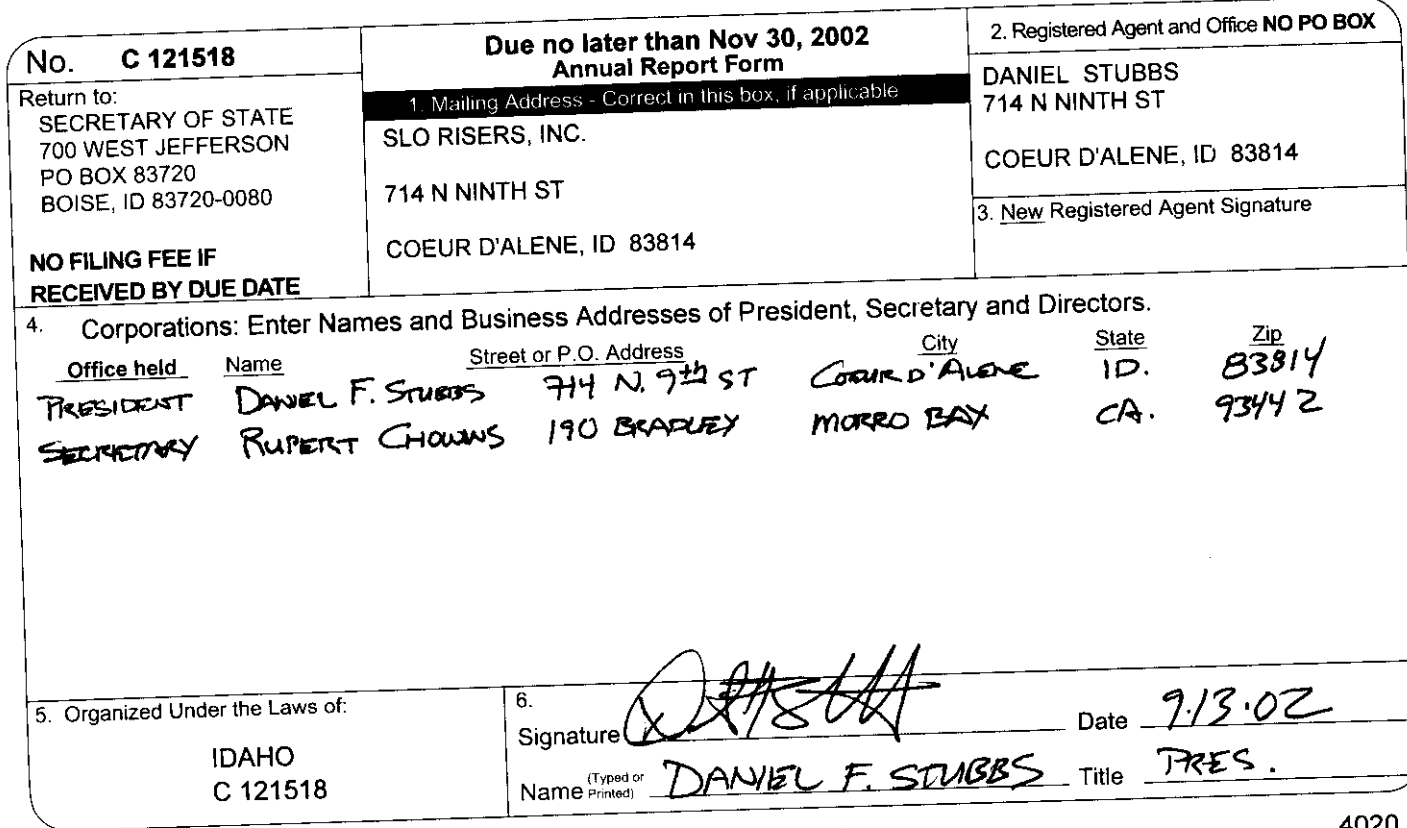 No. C 121518
Return to:
SECRETARY OF STATE
700 WEST JEFFERSON
PO BOX 83720
BOISE, ID 83720-0080
NO FILING FEE IF
RECEIVED BY DUE DATE
Due no later than Nov 30, 2002
Annual Report Form
1. Mailing Address - Correct in this box, if applicable
SLO RISERS, INC.
714 N NINTH ST
COEUR D'ALENE, ID 83814
2. Registered Agent and Office NO PO BOX
DANIEL STUBBS
714 N NINTH ST
COEUR D'ALENE, ID 83814
3. New Registered Agent Signature
4. Corporations: Enter Names and Business Addresses of President, Secretary and Directors.
Office held Name Street or P.O. Address City State Zip
PRESIDENT DANIEL F. STUBBS 714 N. 9th ST COEUR D'ALENE ID. 83814
SECRETARY RUPERT CHOWNS 190 BRADLEY MORRO BAY CA. 93442
5. Organized Under the Laws of:
IDAHO
C 121518
6.
Signature Date 9.13.02
Name (Typed or Printed) DANIEL F. STUBBS Title PRES.
4020